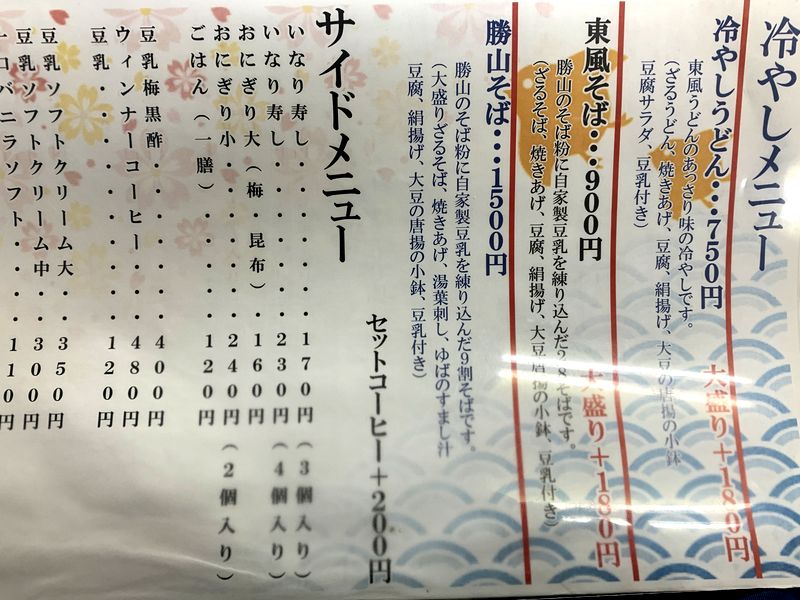 冷やしメニュー
冷やしうどん・・・750円
東風うどんのあっさり味の冷やしです。
(ざるうどん、焼きあげ、豆腐、絹揚げ、大豆の唐揚の小鉢
豆腐サラダ、豆乳付き)
大盛り+180円
東風そば・・・900円
勝山のそば粉に自家製豆乳を練り込んだ28そばです。
(ざるそば、焼きあげ、豆腐、絹揚げ、大豆唐揚の小鉢、豆乳付き)
大盛り+180円
勝山そば・・・1500円
勝山のそば粉に自家製豆乳を練り込んだ9割そばです。
(大盛りざるそば、焼きあげ、湯葉刺し、ゆばのすまし汁
豆腐、絹揚げ、大豆の唐揚の小鉢、豆乳付き)
セットコーヒー+200円
サイドメニュー
いなり寿し・・・・・・170円(3個入り)
いなり寿し・・・・・・230円(4個入り)
おにぎり大(梅・昆布)・160円
おにぎり小・・・・・・240円(2個入り)
ごはん(一膳)・・・・120円
豆乳梅黒酢・・・・・・400円
ウィンナーコーヒー・・・480円
豆乳・・・・・・・・・120円
豆乳ソフトクリーム大・・350円
豆乳ソフトクリーム中・・300円
バニラソフト・・・・110円